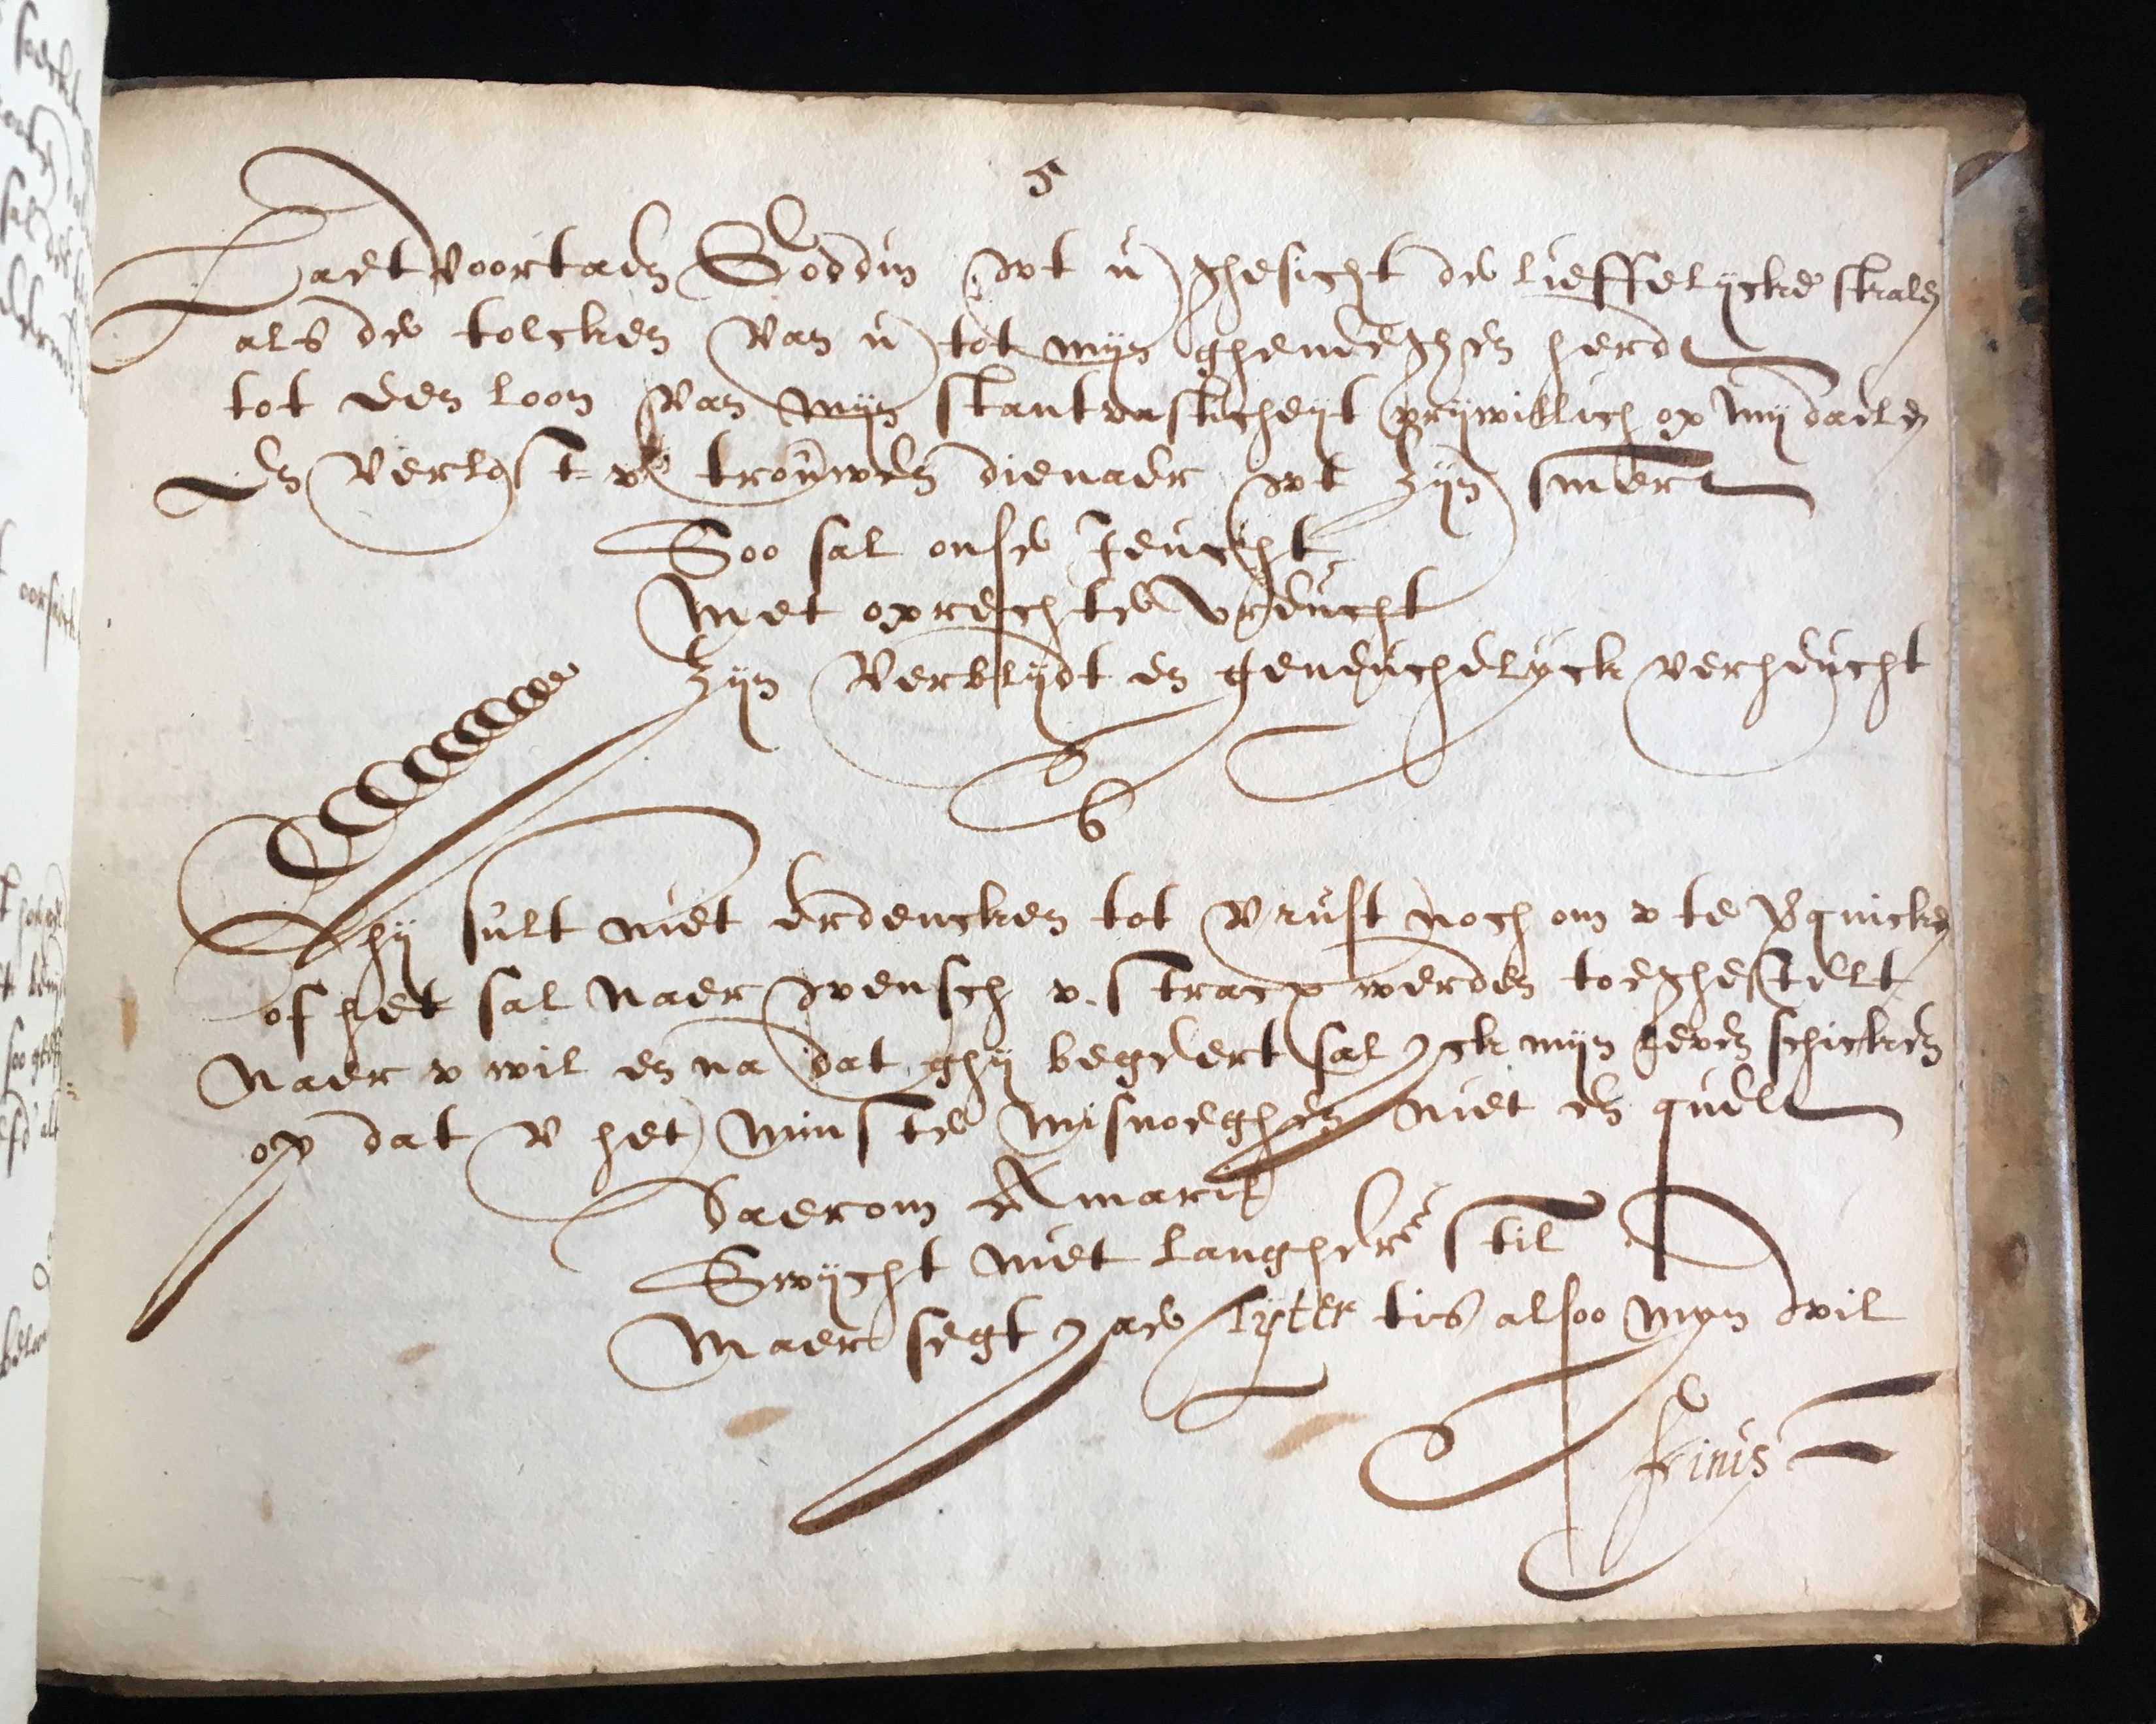 5
Laet voortaen Goddin wt u ghesicht de lieffelycke stralen
als de tolcken van u tot mijn gheneghen herdt
tot den loon van mijn stantvasticheyt vrywillich op my daelen
En verlost u trouwen dienaer wt zijn smert
Soo sal onse Jeucht
Met oprechte vreucht
Zijn verblijdt en geneuchelyck verheucht
6
Ghy sult niet erdencken tot v rust noch om v te verquicken
of het sal naer wensch v stracx werden toeghestelt
Naer v wil en na dat ghy begeert sal yck mijn leven schicken
op dat v het minste misnoeghen niet en quelt
Daerom Amaril
Swycht niet langher stil
Maer segt Jae Tyter tis alsoo myn wil
finis